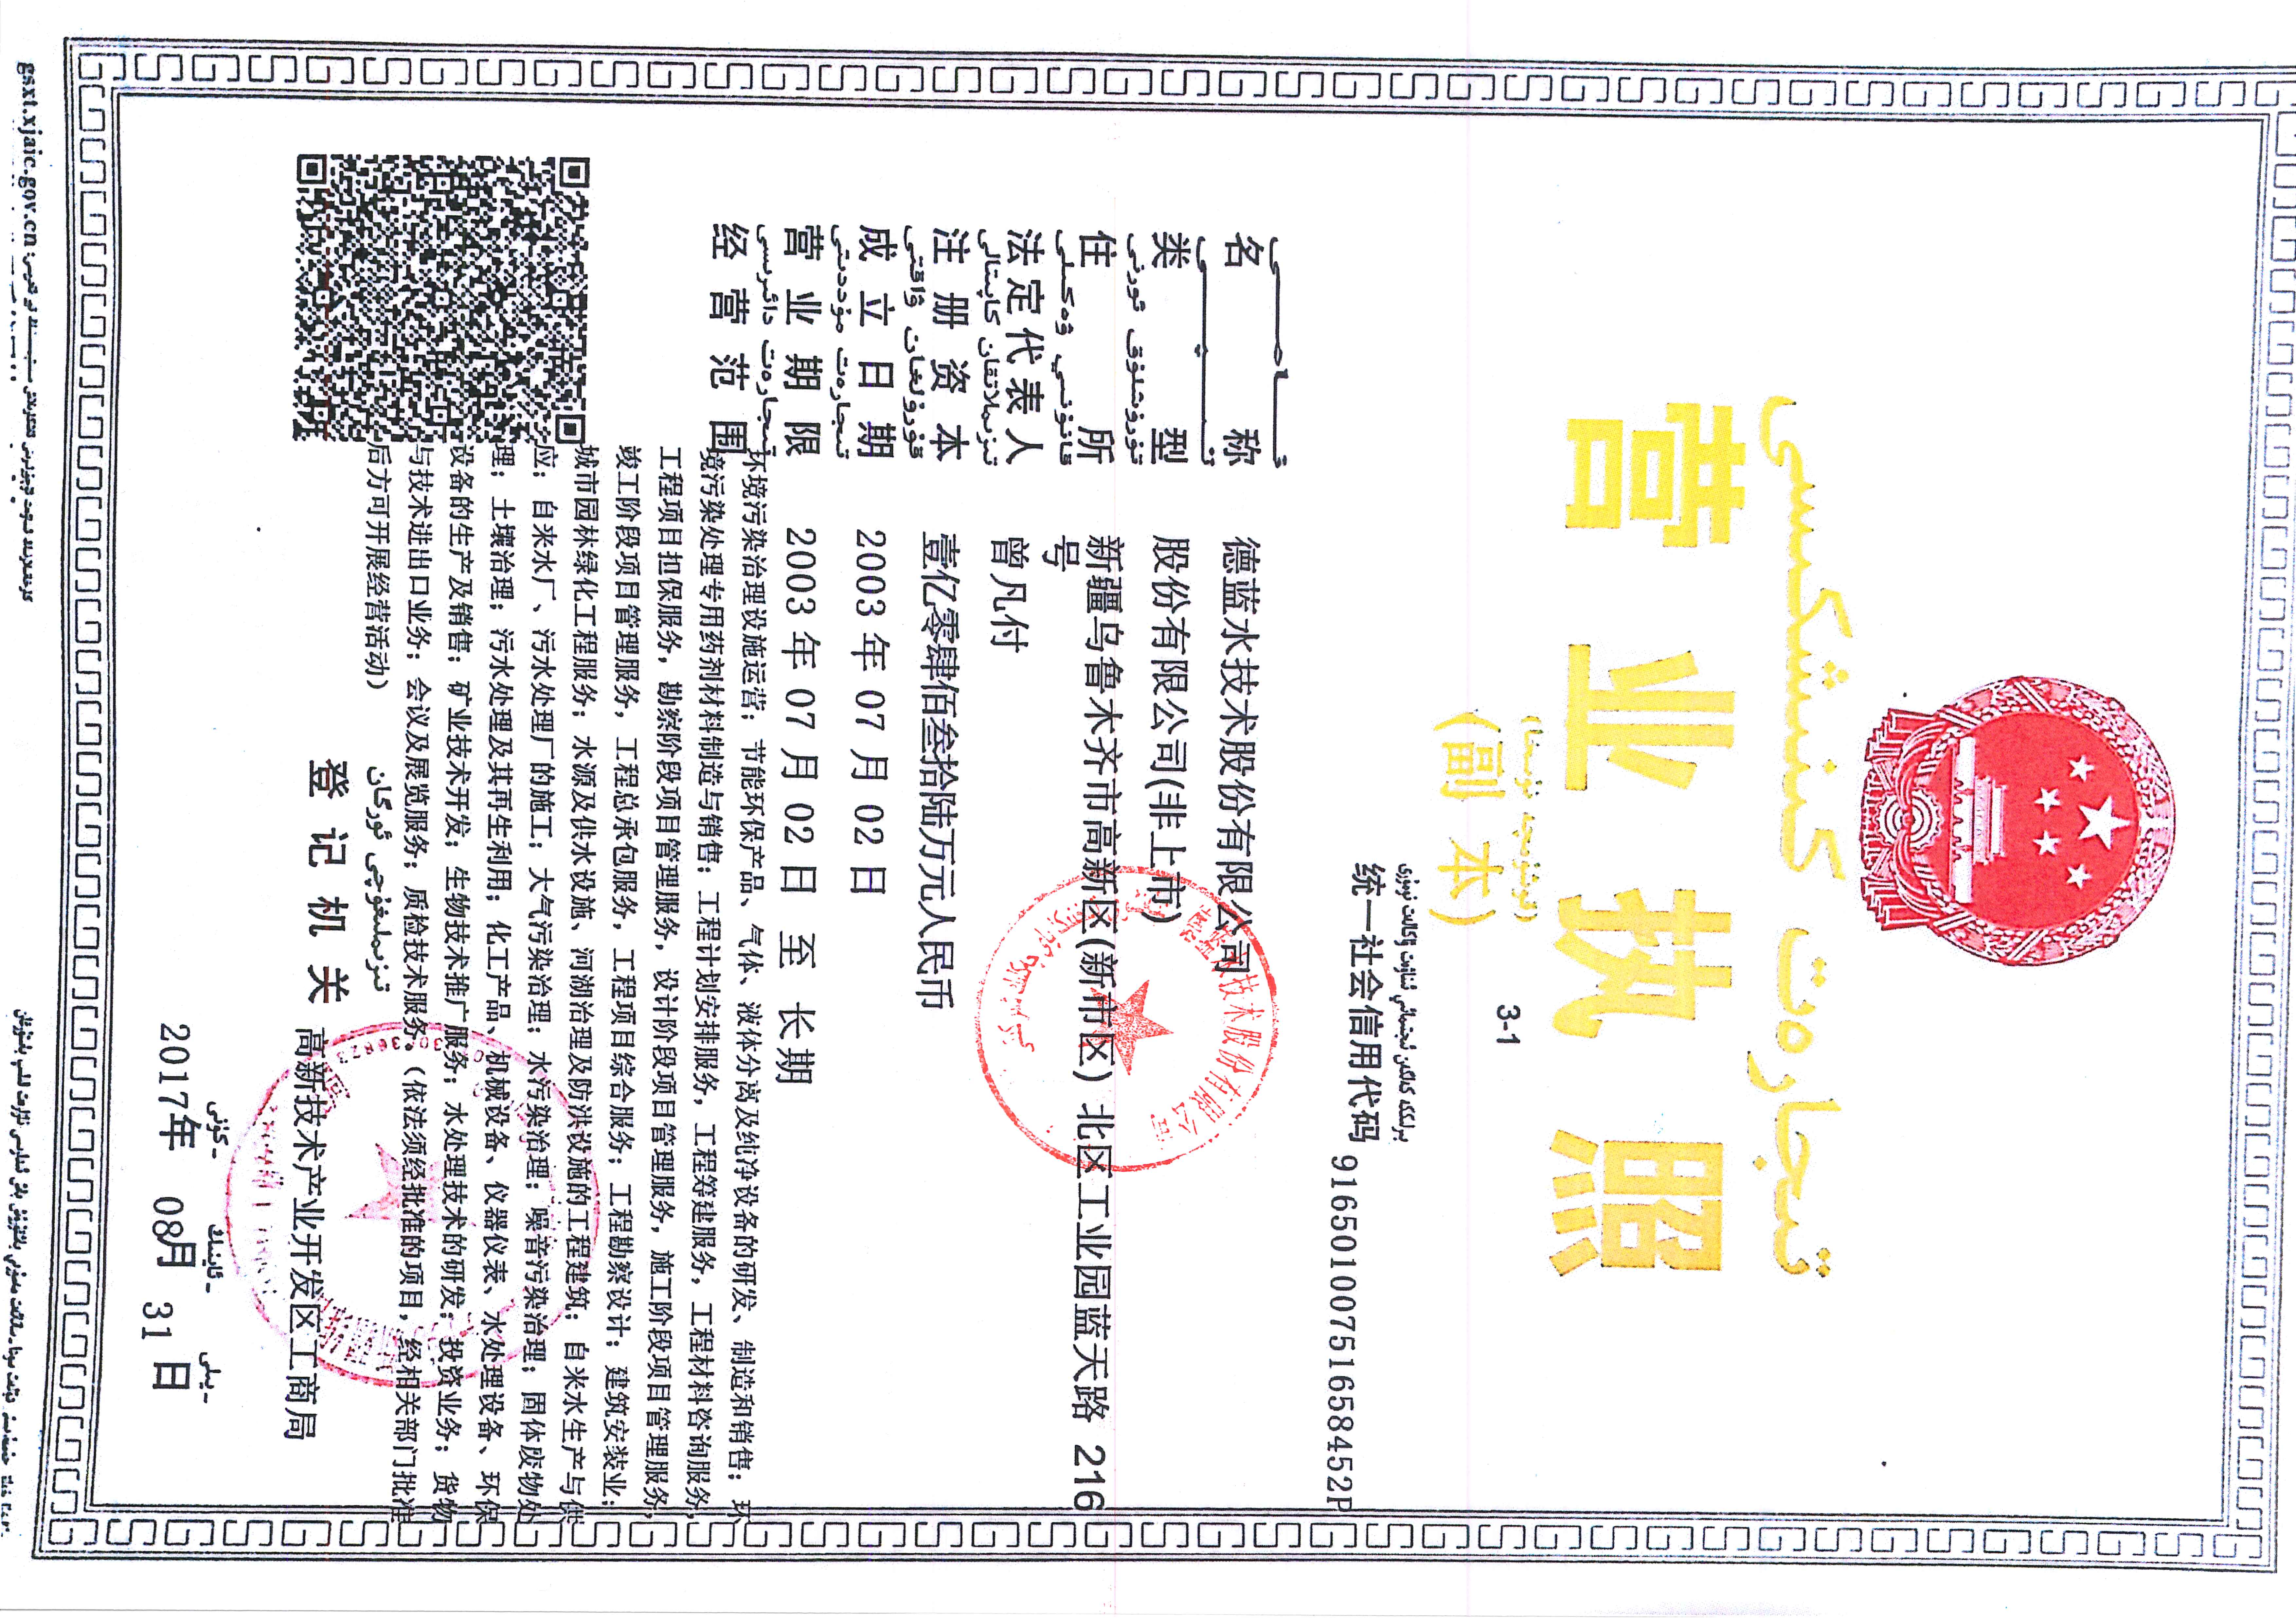 تىجارەت كىنىشكىسى
营业执照
(كۆشۈرمە نۇسخا)
(副本)
3-1
统一社会信用代码 91650100751658452P
名称 德蓝水技术股份有限公司
类型 股份有限公司(非上市)
住所 新疆乌鲁木齐市高新区(新市区)北区工业园蓝天路 216
号
法定代表人 曾凡付
注册资本 壹亿零肆佰叁拾陆万元人民币
成立日期 2003 年 07 月 02 日
营业期限 2003 年 07 月 02 日 至 长期
经营范围 环境污染治理设施运营；节能环保产品、气体、液体分离及纯净设备的研发、制造和销售；环
境污染处理专用药剂材料制造与销售；工程计划安排服务，工程筹建服务，工程材料咨询服务，
工程项目担保服务，勘察阶段项目管理服务，设计阶段项目管理服务，施工阶段项目管理服务，
竣工阶段项目管理服务，工程总承包服务，工程项目综合服务；工程勘察设计；建筑安装业；
城市园林绿化工程服务；水源及供水设施、河湖治理及防洪设施的工程建筑；自来水生产与供
应；自来水厂、污水处理厂的施工；大气污染治理；水污染治理；噪音污染治理；固体废物处
理；土壤治理；污水处理及其再生利用；化工产品、机械设备、仪器仪表、水处理设备、环保
设备的生产及销售；矿业技术开发；生物技术推广服务；水处理技术的研发；投资业务；货物
与技术进出口业务；会议及展览服务；质检技术服务。（依法须经批准的项目，经相关部门批准
后方可开展经营活动）
德蓝水技术股份有限公司
تىزىملىغۇچى ئورگان
登记机关 高新技术产业开发区工商局
2017年 08月 31日
gsxt.xjaic.gov.cn